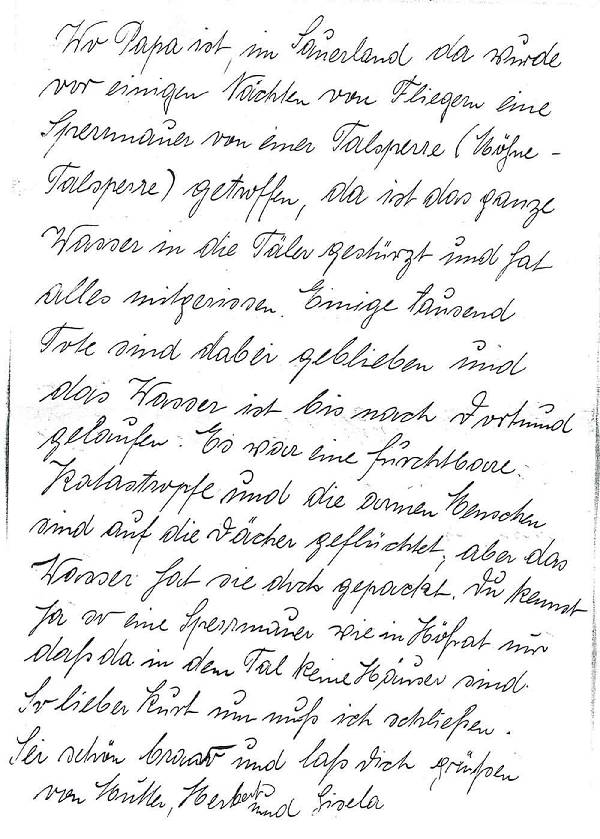 Wo Papa ist, im Sauerland da wurde
vor einigen Nächten von Fliegern eine
Sperrmauer von einer Talsperre (Möhne-
Talsperre) getroffen, da ist das ganze
Wasser in die Täler gestürzt und hat
alles mitgerissen. Einige tausend
Tote sind dabei geblieben und
das Wasser ist bis nach Dortmund
gelaufen. Es war eine furchtbare
Katastrophe und die armen Menschen
sind auf die Dächer geflüchtet, aber das
Wasser hat sie doch gepackt. Du kennst
ja so eine Sperrmauer wie in nur
daß da in dem Tal keine Häuser sind.
So lieber Kurt nun muß ich schließen.
Sei schön brav und laß dich grüßen
von Mutter, Herbert und Gisela